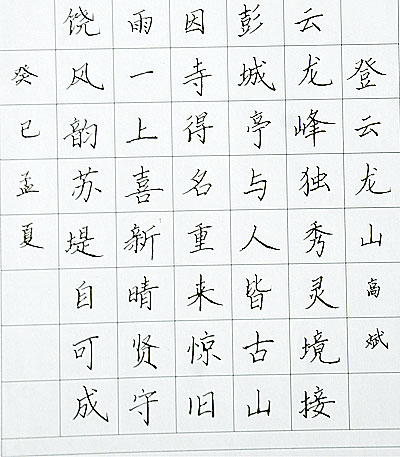 登云龙山 高斌
云龙峰独秀灵境接
彭城亭与人皆古山
因寺得名重来惊旧
雨一上喜新晴贤守
饶风韵苏堤自可成
癸巳孟夏